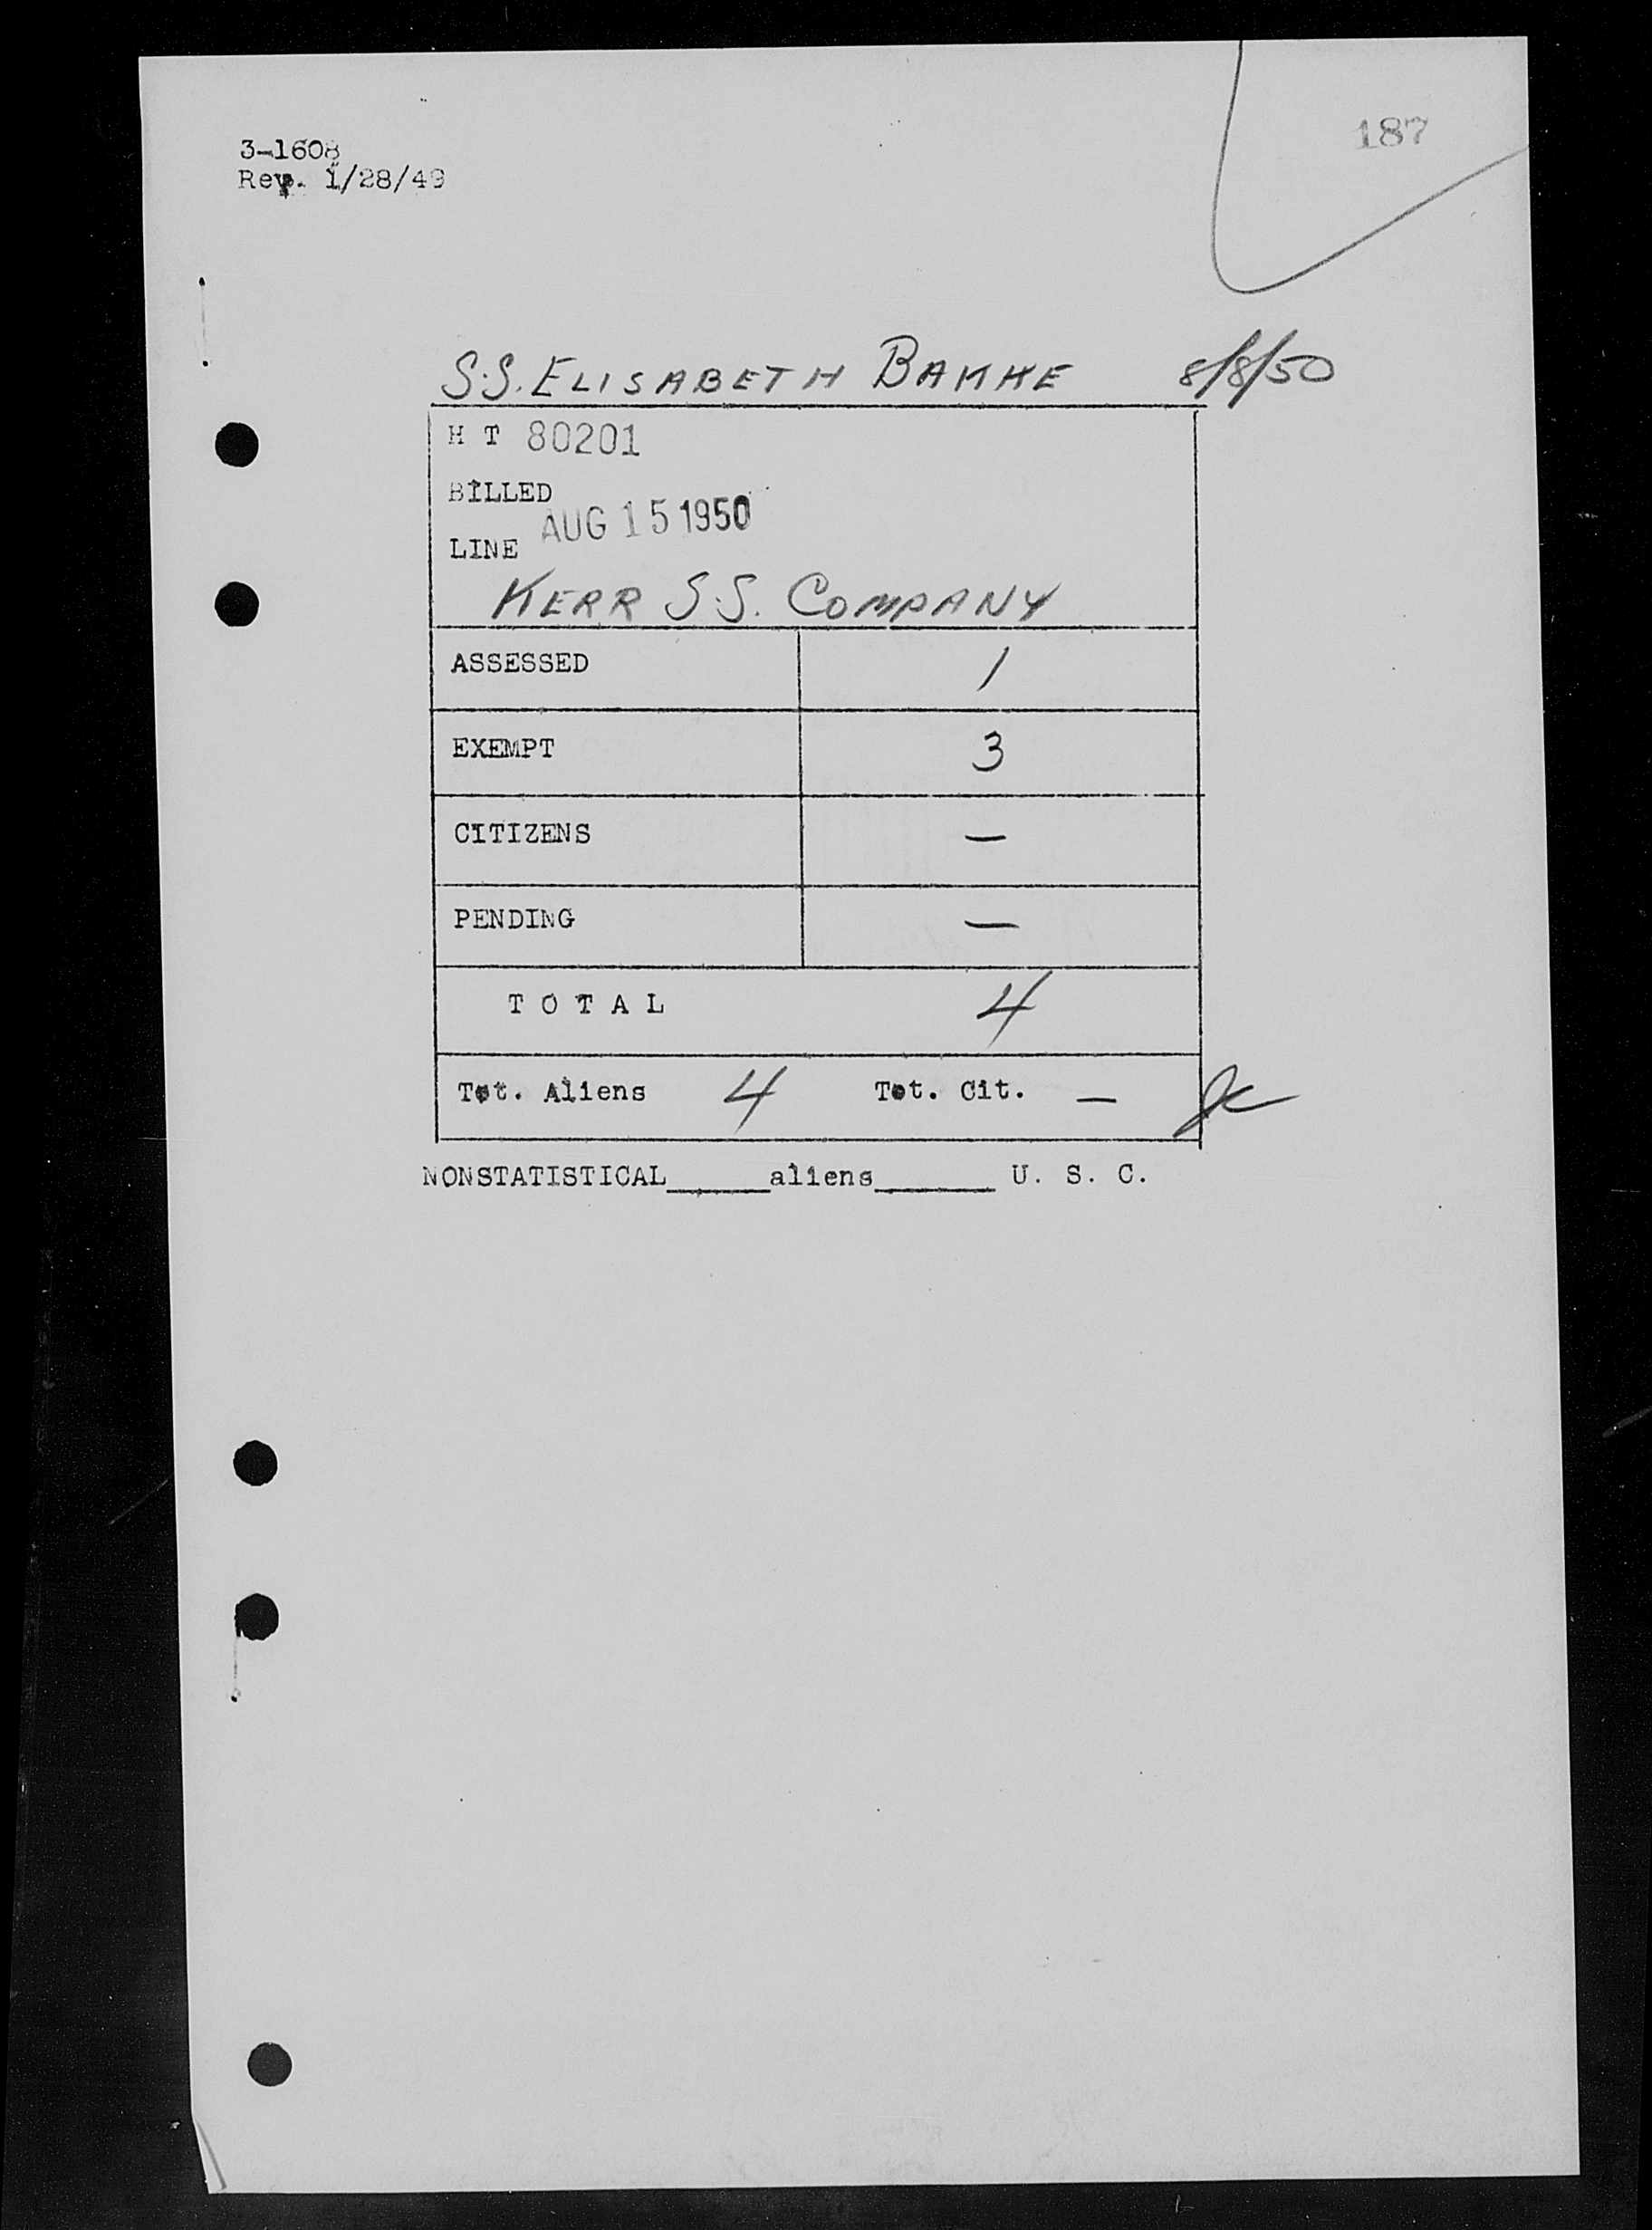 187
3-1608
Rev. 1/28/49
S.S. ELISABETH BAKKE 8/8/50
H T 80201
BILLED
AUG 15 1950
LINE
KERR S.S. COMPANY
ASSESSED 1
EXEMPT 3
CITIZENS —
PENDING —
T O T A L 4
Tot. Aliens 4 Tot. Cit. —
NONSTATISTICAL______aliens_______ U. S. C.